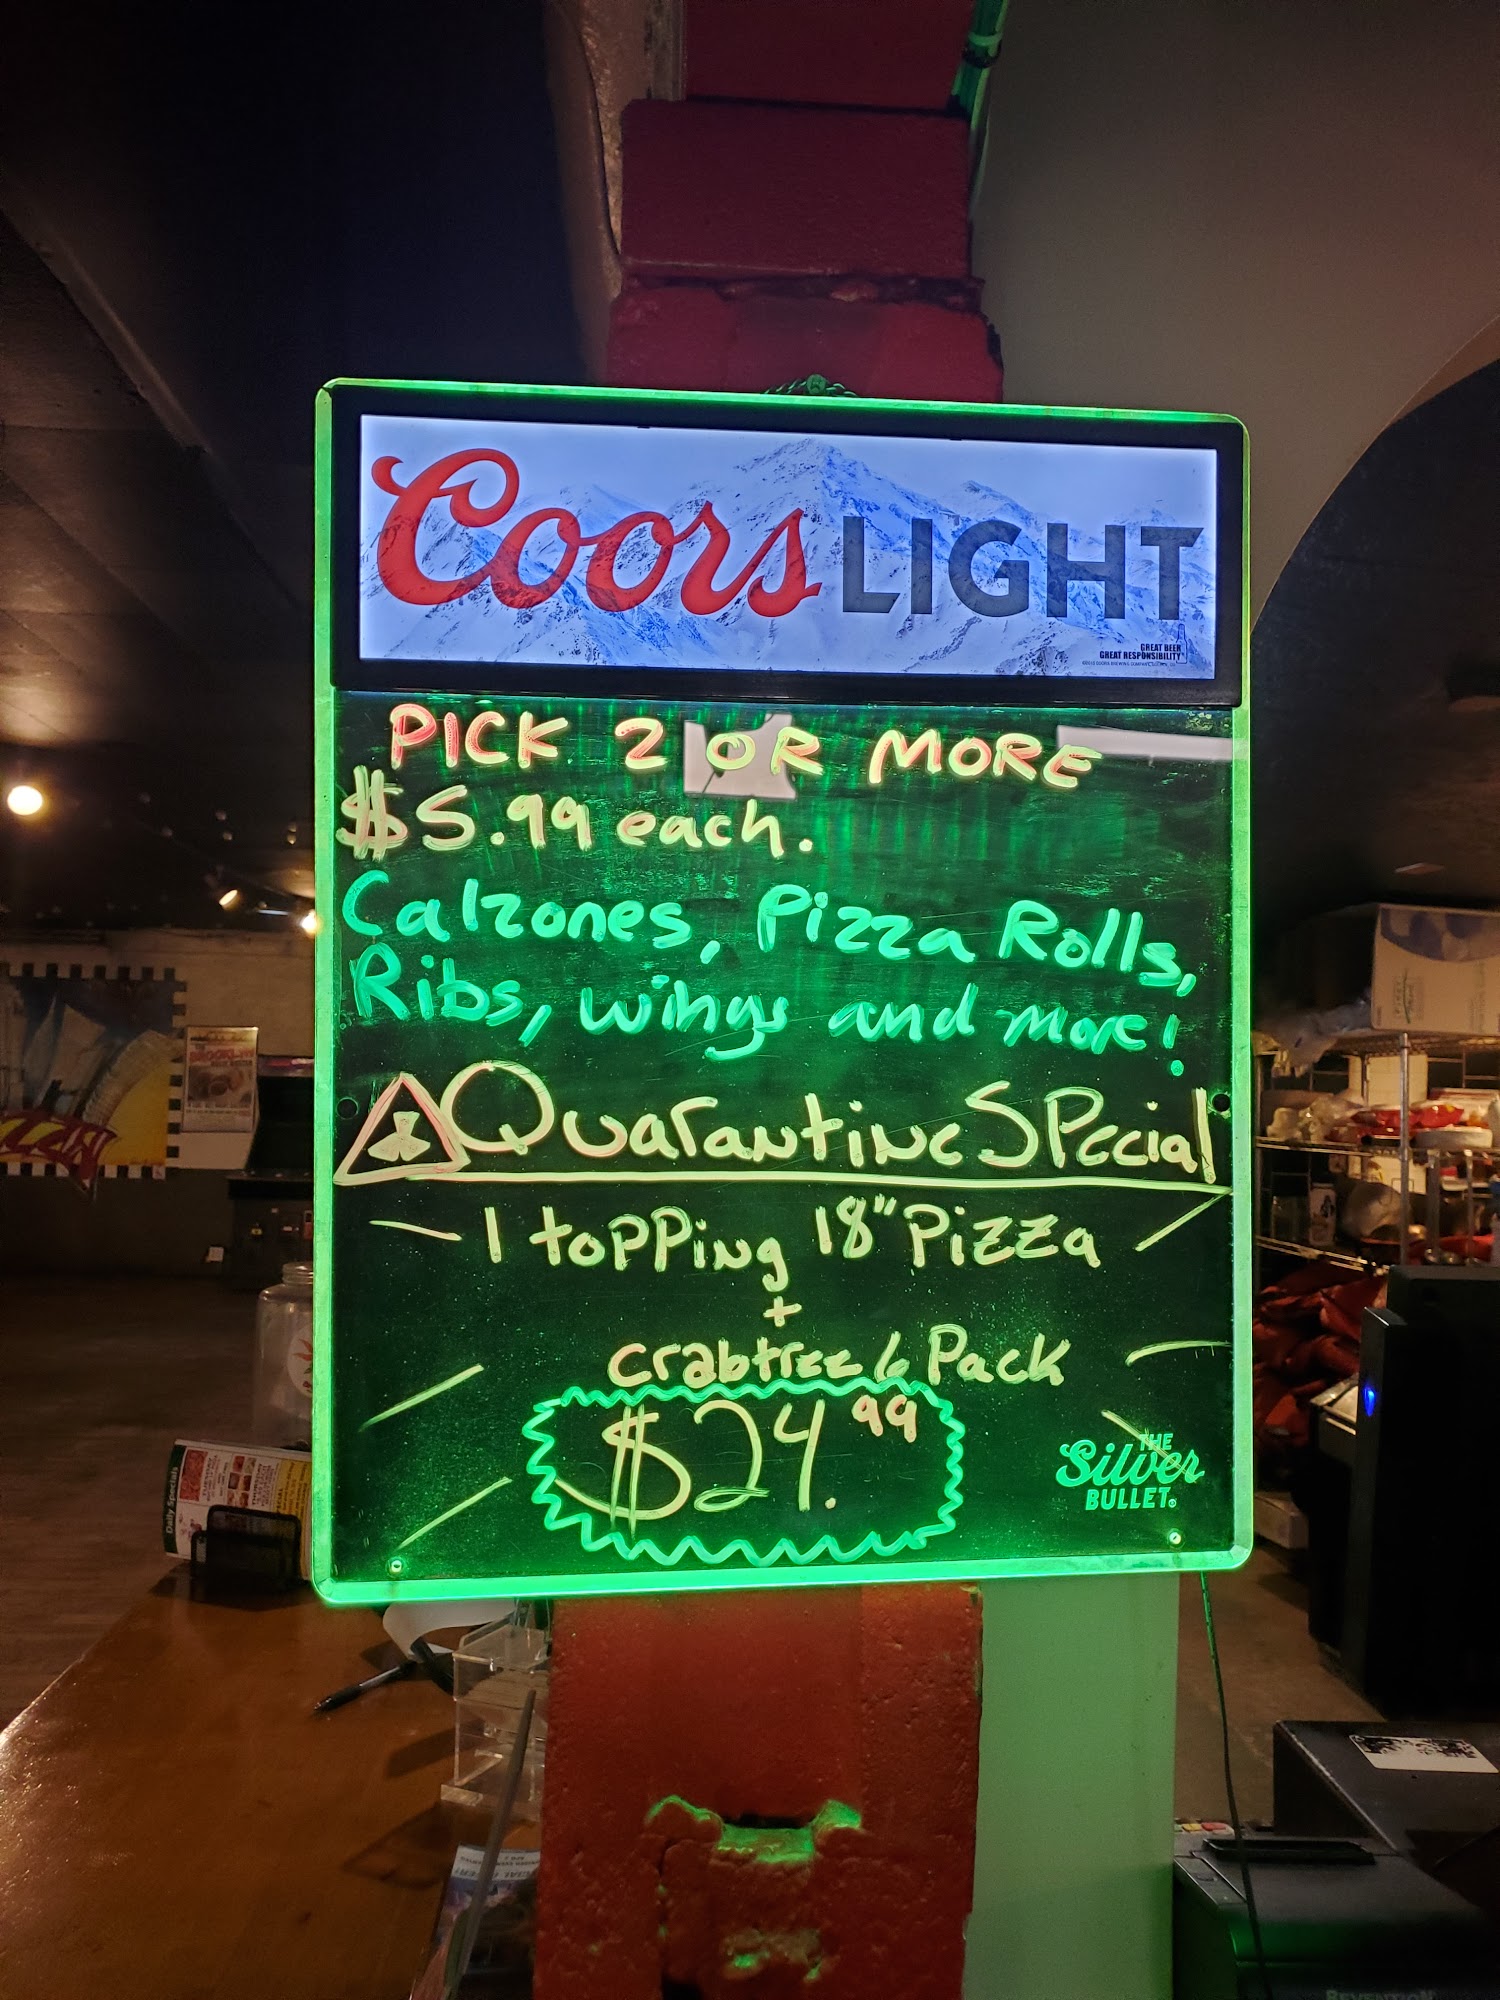 Coors LIGHT
GREAT BEER
GREAT RESPONSIBILITY
PICK 2 OR MORE
$5.99 each.
Calzones, Pizza Rolls,
Ribs, wings and more!
Quarantine Special
1 topping 18" Pizza
+
crabtree 6 Pack
$24.99
THE
Silver
BULLET.
Daily Specials
BROOKLYN
REVENTION